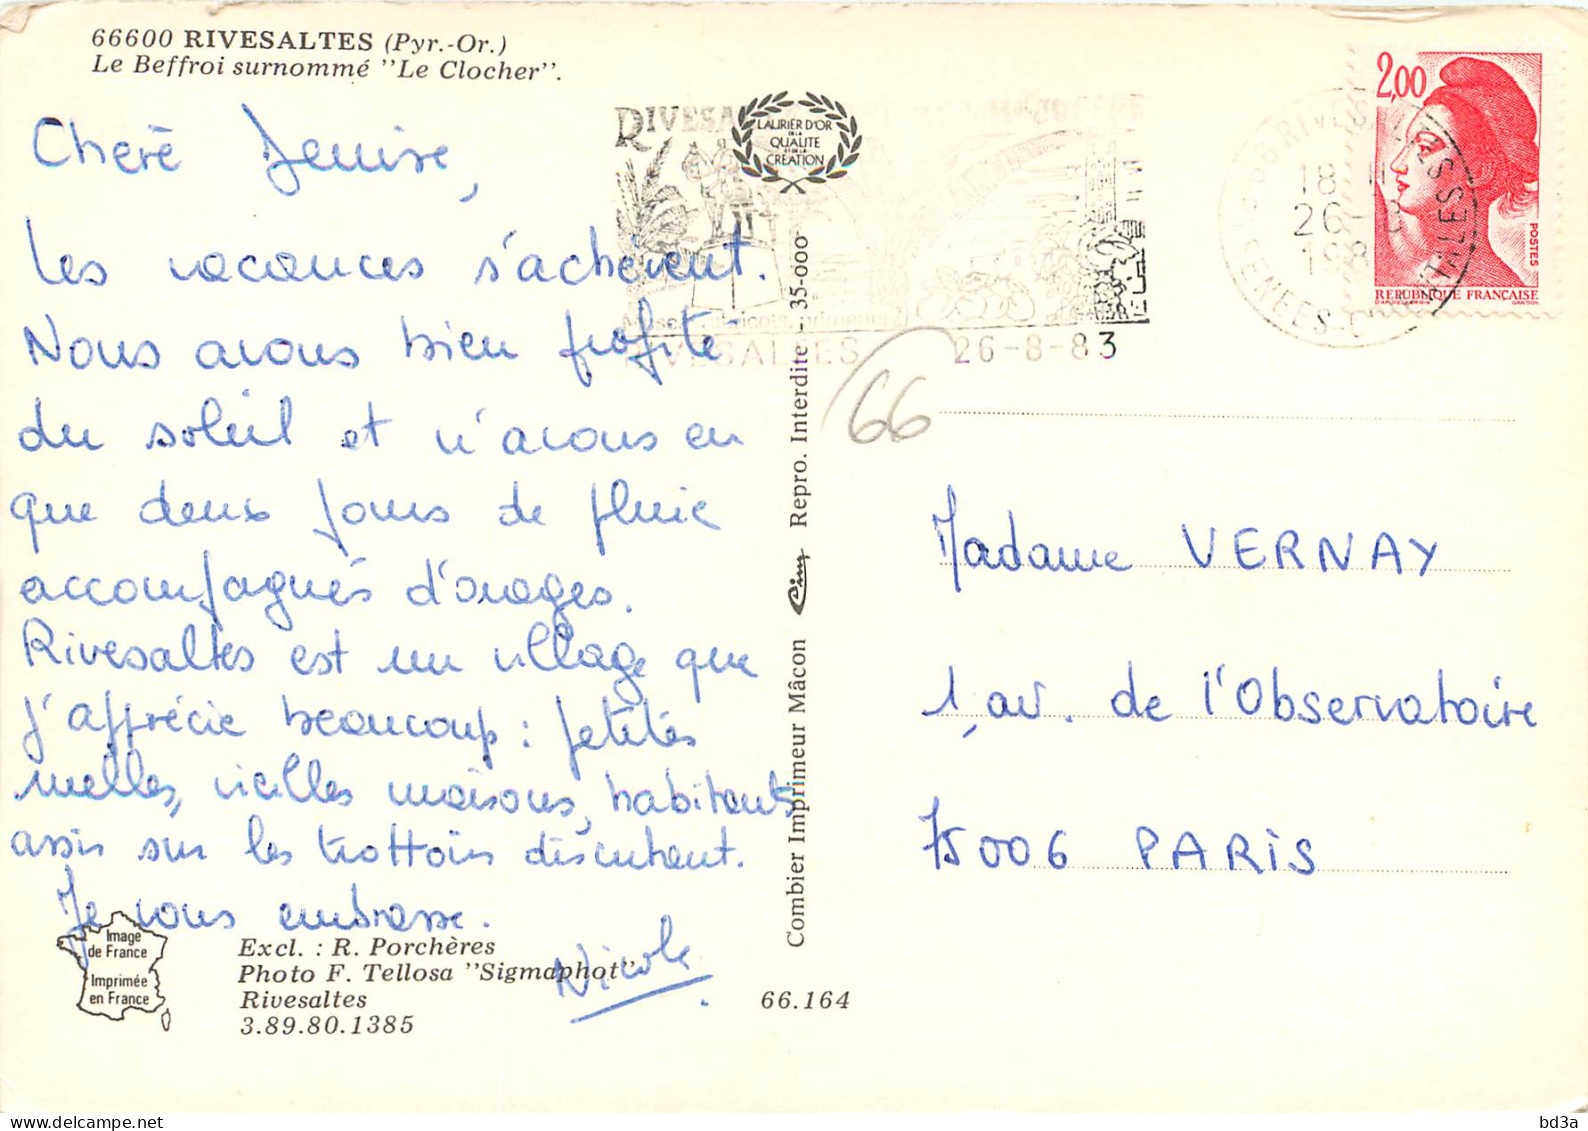 66600 RIVESALTES (Pyr.-Or.)
Le Beffroi surnommé "Le Clocher".
Chère Denise,
Les vacances s'achèvent.
Nous avons bien profité
du soleil et n'avons eu
que deux jours de pluie
accompagnés d'orages.
Rivesaltes est un village que
j'apprécie beaucoup : petites
ruelles, vieilles maisons, habitants
assis sur les trottoirs discutant.
Je vous embrasse.
Nicole
Image
de France
Imprimée
en France
Excl. : R. Porchères
Photo F. Tellosa "Sigmaphot"
Rivesaltes
3.89.80.1385
66.164
Combier Imprimeur Mâcon Cim Repro. Interdite 35-000
LAURIER D'OR
DE LA
QUALITE
ET DE LA
CREATION
RIVESA
RIVESALTES
26-8-83
66
66 RIVESALTES
18 H
26-8
198
2,00
POSTES
REPUBLIQUE FRANÇAISE
Madame VERNAY
1, av. de l'Observatoire
75006 PARIS
bd3a